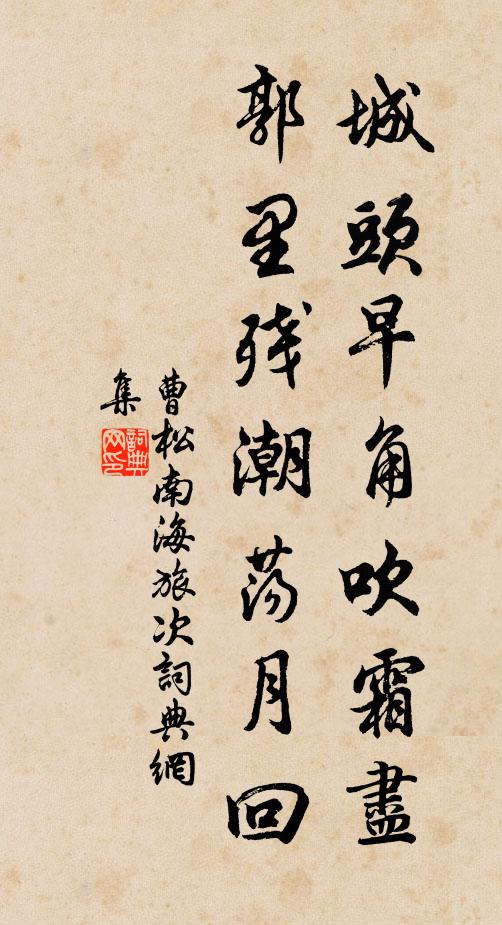 城頭早角吹霜盡
郭里殘潮蕩月回
曹松南海旅次詞典網
集
詞典
网印